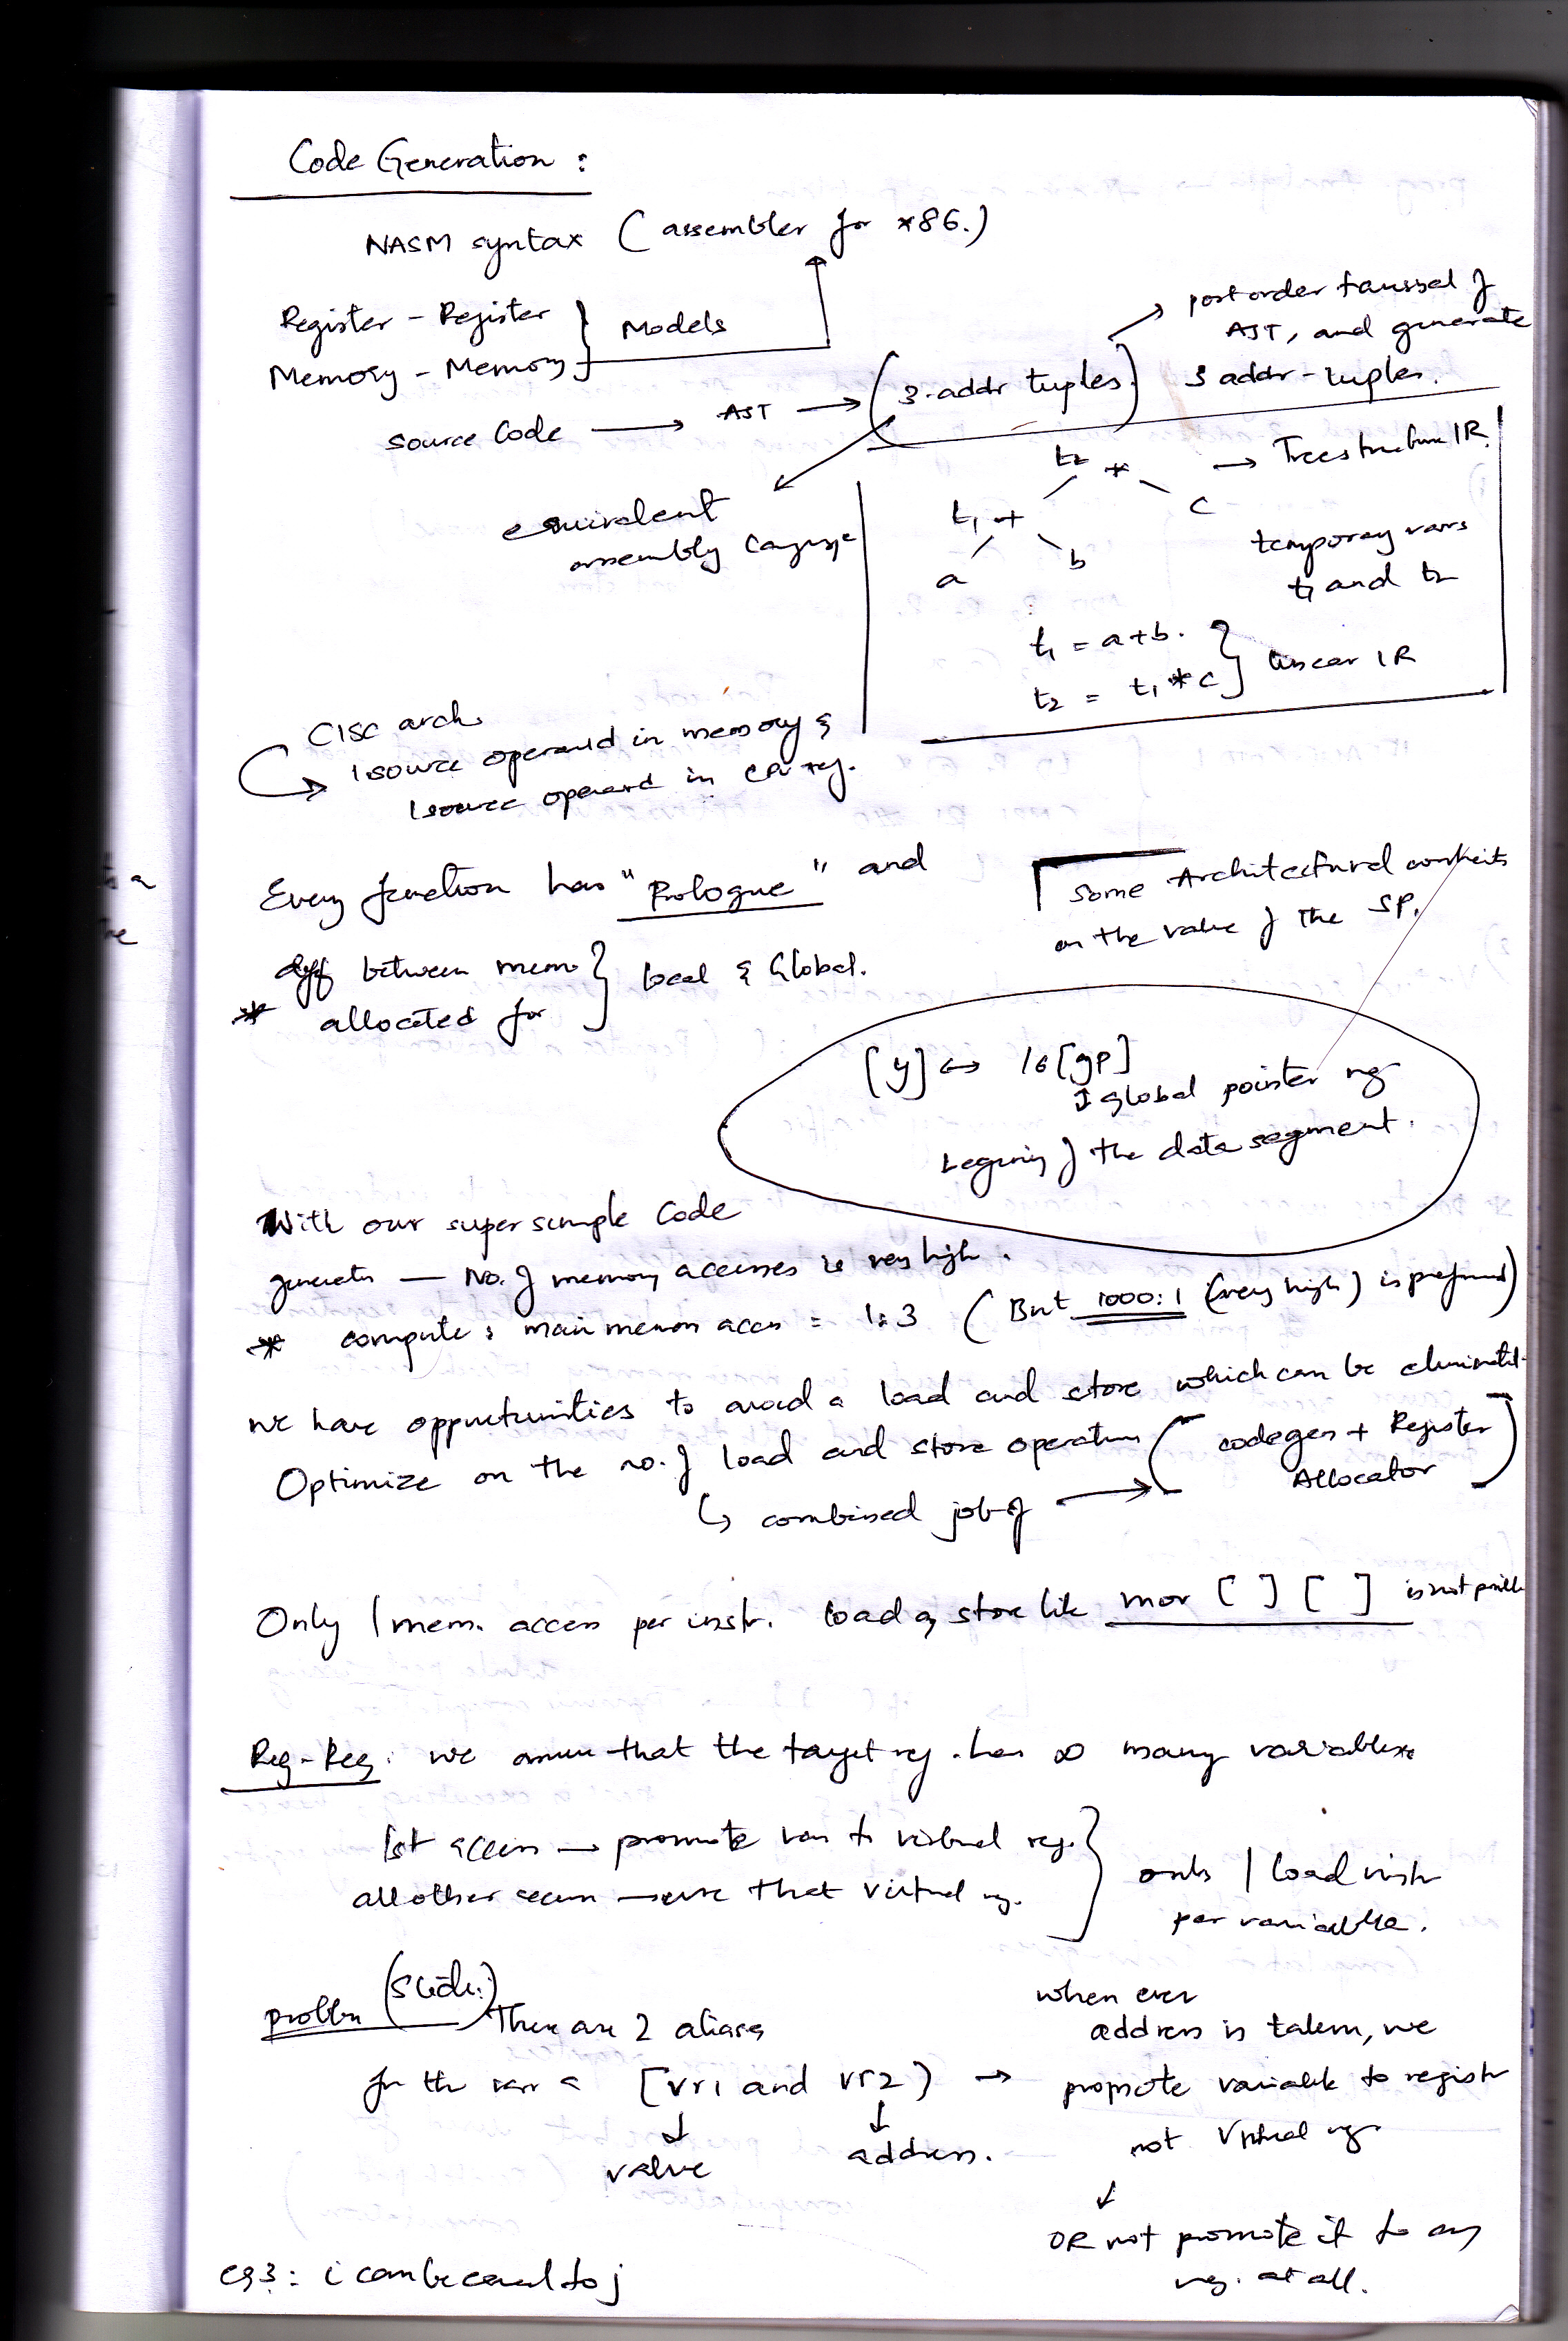 Code Generation :
NASM syntax ( assembler for x86.)
Register - Register
Memory - Memory } Models
source Code → AST → (3-addr tuples)
→ post order of
AST, and generate
3 addr-tuples.
equivalent
assembly
t2 * → Tree structure IR.
t1 + c
a b
temporary vars
t1 and t2
t1 = a+b.
t2 = t1 * c } linear IR
CISC arch.
1 source operand in memory &
1 source operand in CPU reg.
Every function has "Prologue" and
Some Architectural
on the value of the SP.
* diff between mem
allocated for } local & Global.
[y] ↔ 16[gp]
↕ global pointer reg
of the data segment.
With our super simple code
generator — No. of memory accesses is very high.
* compute : main memory access = 1:3 ( But 1000:1 (very high) is preferred)
we have opportunities to avoid a load and store which can be eliminated.
Optimize on the no. of load and store operations ( codegen + Register
Allocator )
↳ combined job of →
Only 1 mem. access per instr. load & store like mov [ ] [ ] is not possible
Reg-Reg: we assume that the target reg. has ∞ many variables
1st access → promote var to virtual reg.
all other access → use that virtual reg. } only 1 load instr
per variable.
problem (slide:) There are 2 aliases
for the var a [vr1 and vr2) →
↓ value ↓ address.
when ever
address is taken, we
promote variable to register
not virtual reg.
↓
OR not promote it to any
reg. at all.
eg3: i can be equal to j